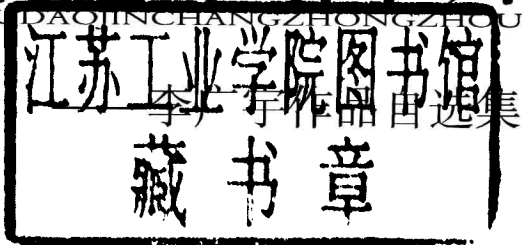 DAOJINCHANGZHONGZHOU
江苏工业学院图书馆
李广宇作品自选集
藏书章